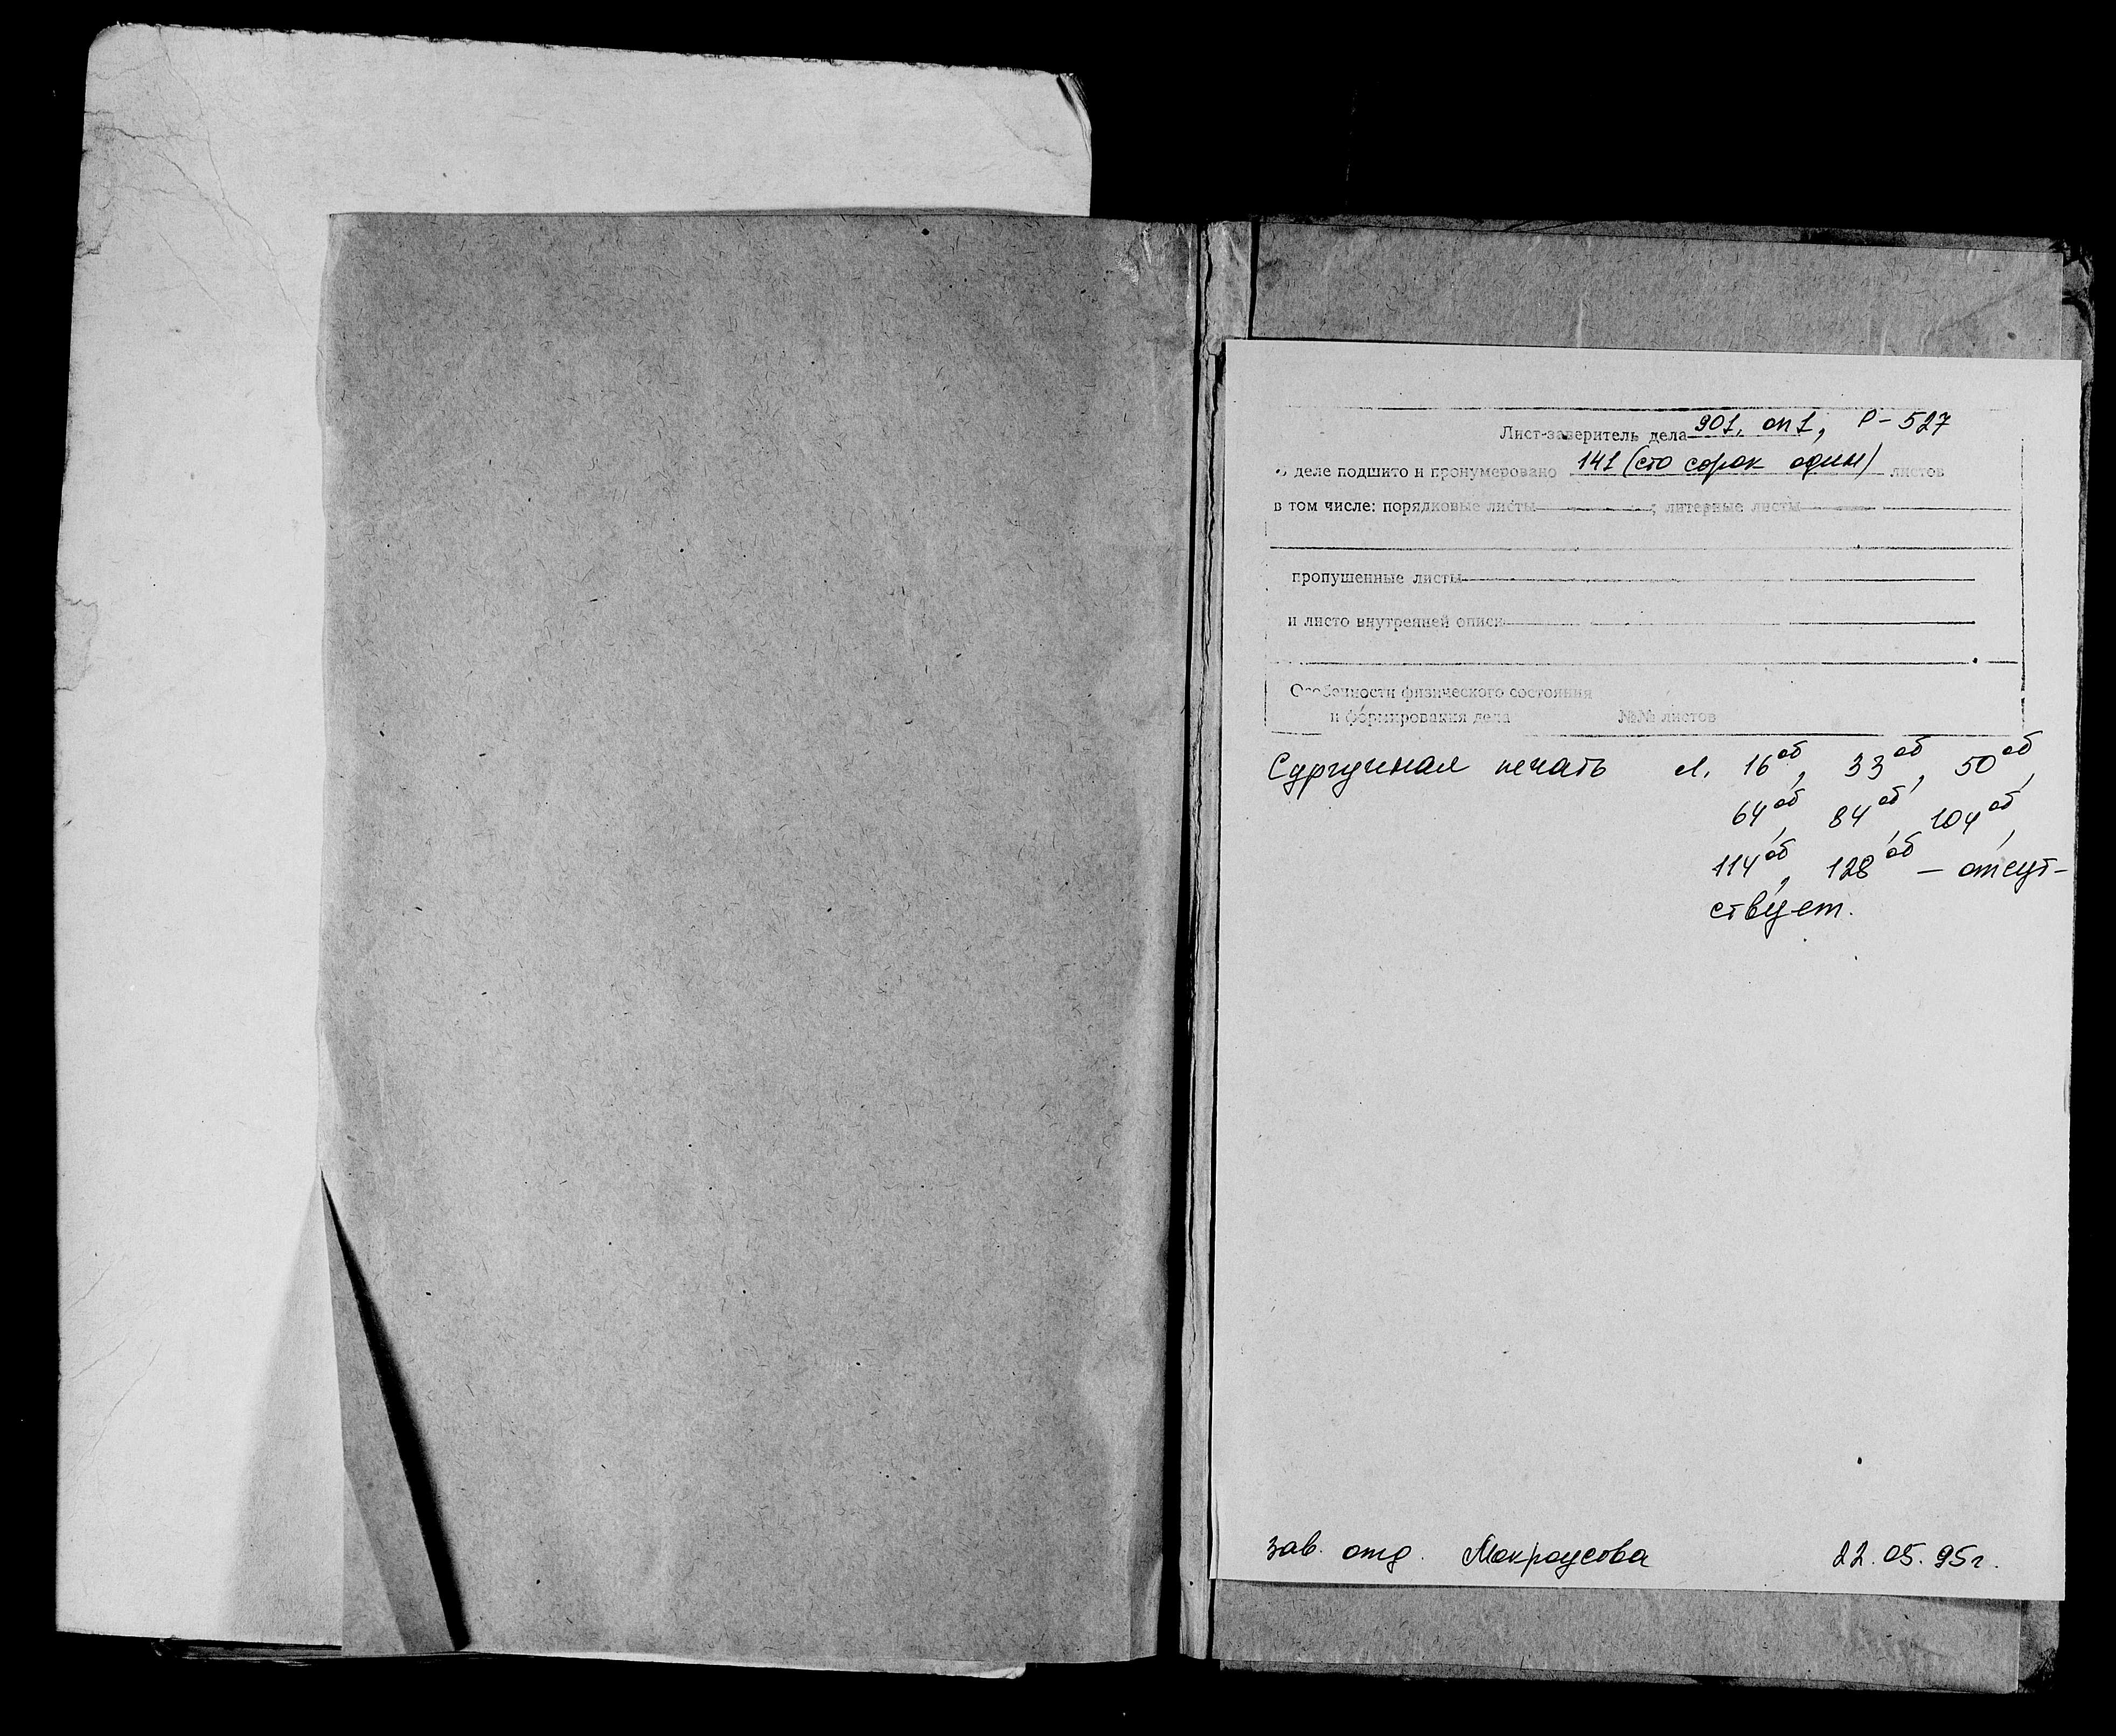 Лист-заверитель дела 901, оп1, Р-527
В деле подшито и пронумеровано 141 (сто сорок один) листов
в том числе: порядковые листы ; литерные листы
пропушенные листы
и листо внутренней описи
Особенности физического состояния
и формирования дела №№ листов
Сургучная печать л. 16об, 33об, 50об,
64об, 84об, 104об,
114об, 128об – отсут-
ствует.
зав. отд. Мокроусова 22.05.95г.